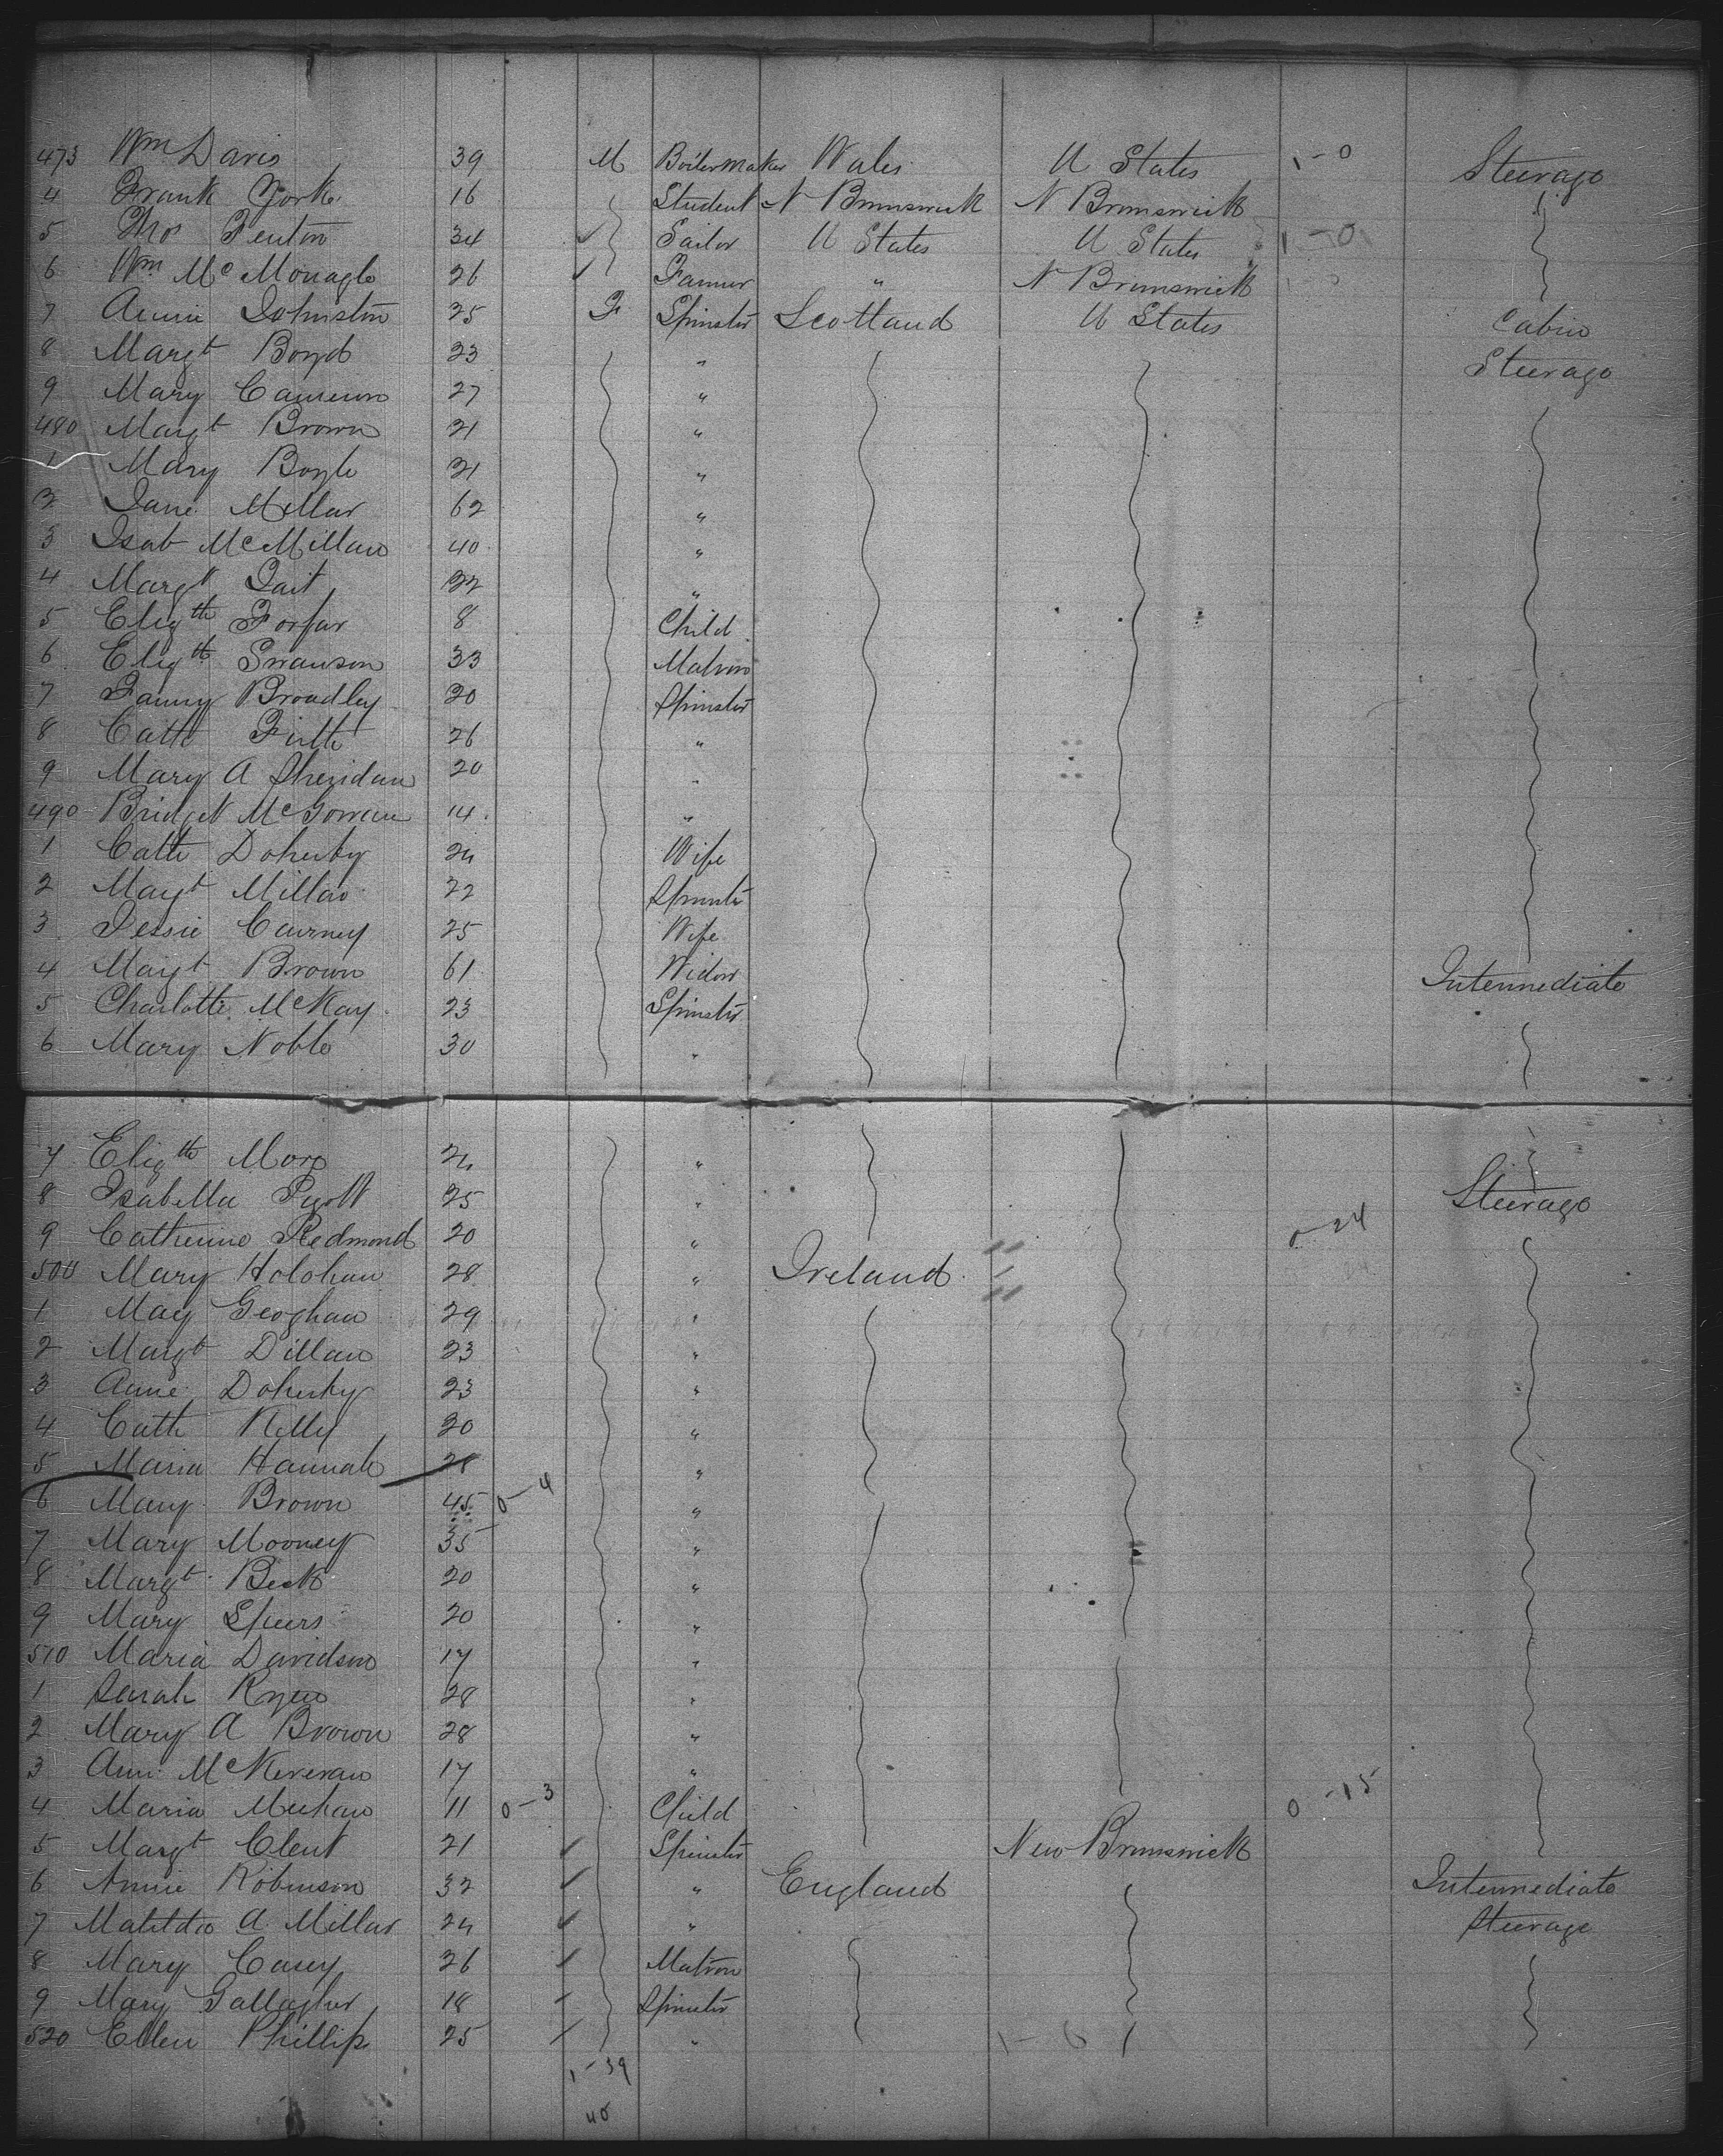 473 Wm Davis 39 M Boilermaker Wales U States 1-0 Steerage
4 Frank York 16 Student N Brunswick N Brunswick
5 Thos Fenton 34 Sailor U States U States 1-0
6 Wm McMonagle 26 Farmer " N Brunswick
7 Annie Johnston 25 F Spinster Scotland U States Cabin
8 Margt Boyd 23 " Steerage
9 Mary Cameron 27 "
480 Margt Brown 21 "
1 Mary Boyle 21 "
2 Jane Millar 62 "
3 Isab McMillan 40 "
4 Margt Tait 22 "
5 Elizth Forfar 8 Child
6 Elizth Swanson 33 Matron
7 Fanny Broadley 20 Spinster
8 Cath Firth 26 "
9 Mary A Sheridan 20 "
490 Bridget McGowan 14 "
1 Cath Doherty 24 Wife
2 Margt Millar 22 Spinster
3 Jessie Cairney 25 Wife
4 Margt Brown 61 Widow Intermediate
5 Charlotte McKay 23 Spinster
6 Mary Noble 30 "
7 Elizth More 24 "
8 Isabella 25 " Steerage
9 Catherine Redmond 20 " 0-24
500 Mary Holohan 28 " Ireland
1 May Geoghan 29 "
2 Margt Dillan 23 "
3 Anne Doherty 23 "
4 Cath Kelly 20 "
5 Maria Hannah 28 "
6 Mary Brown 45 0-4 "
7 Mary Mooney 35 "
8 Margt Beck 20 "
9 Mary Speers 20 "
510 Maria Davidson 17 "
1 Sarah Ryan 28 "
2 Mary A Brown 28 "
3 Ann McKerevan 17 "
4 Maria Meehan 11 0-3 Child 0-15
5 Margt Clent 21 Spinster New Brunswick
6 Annie Robinson 32 " England Intermediate
7 Matilda A Millar 24 " Steerage
8 Mary Casey 26 Matron
9 Mary Gallagher 18 Spinster
520 Ellen Phillips 25 " 1-6
1-39
40